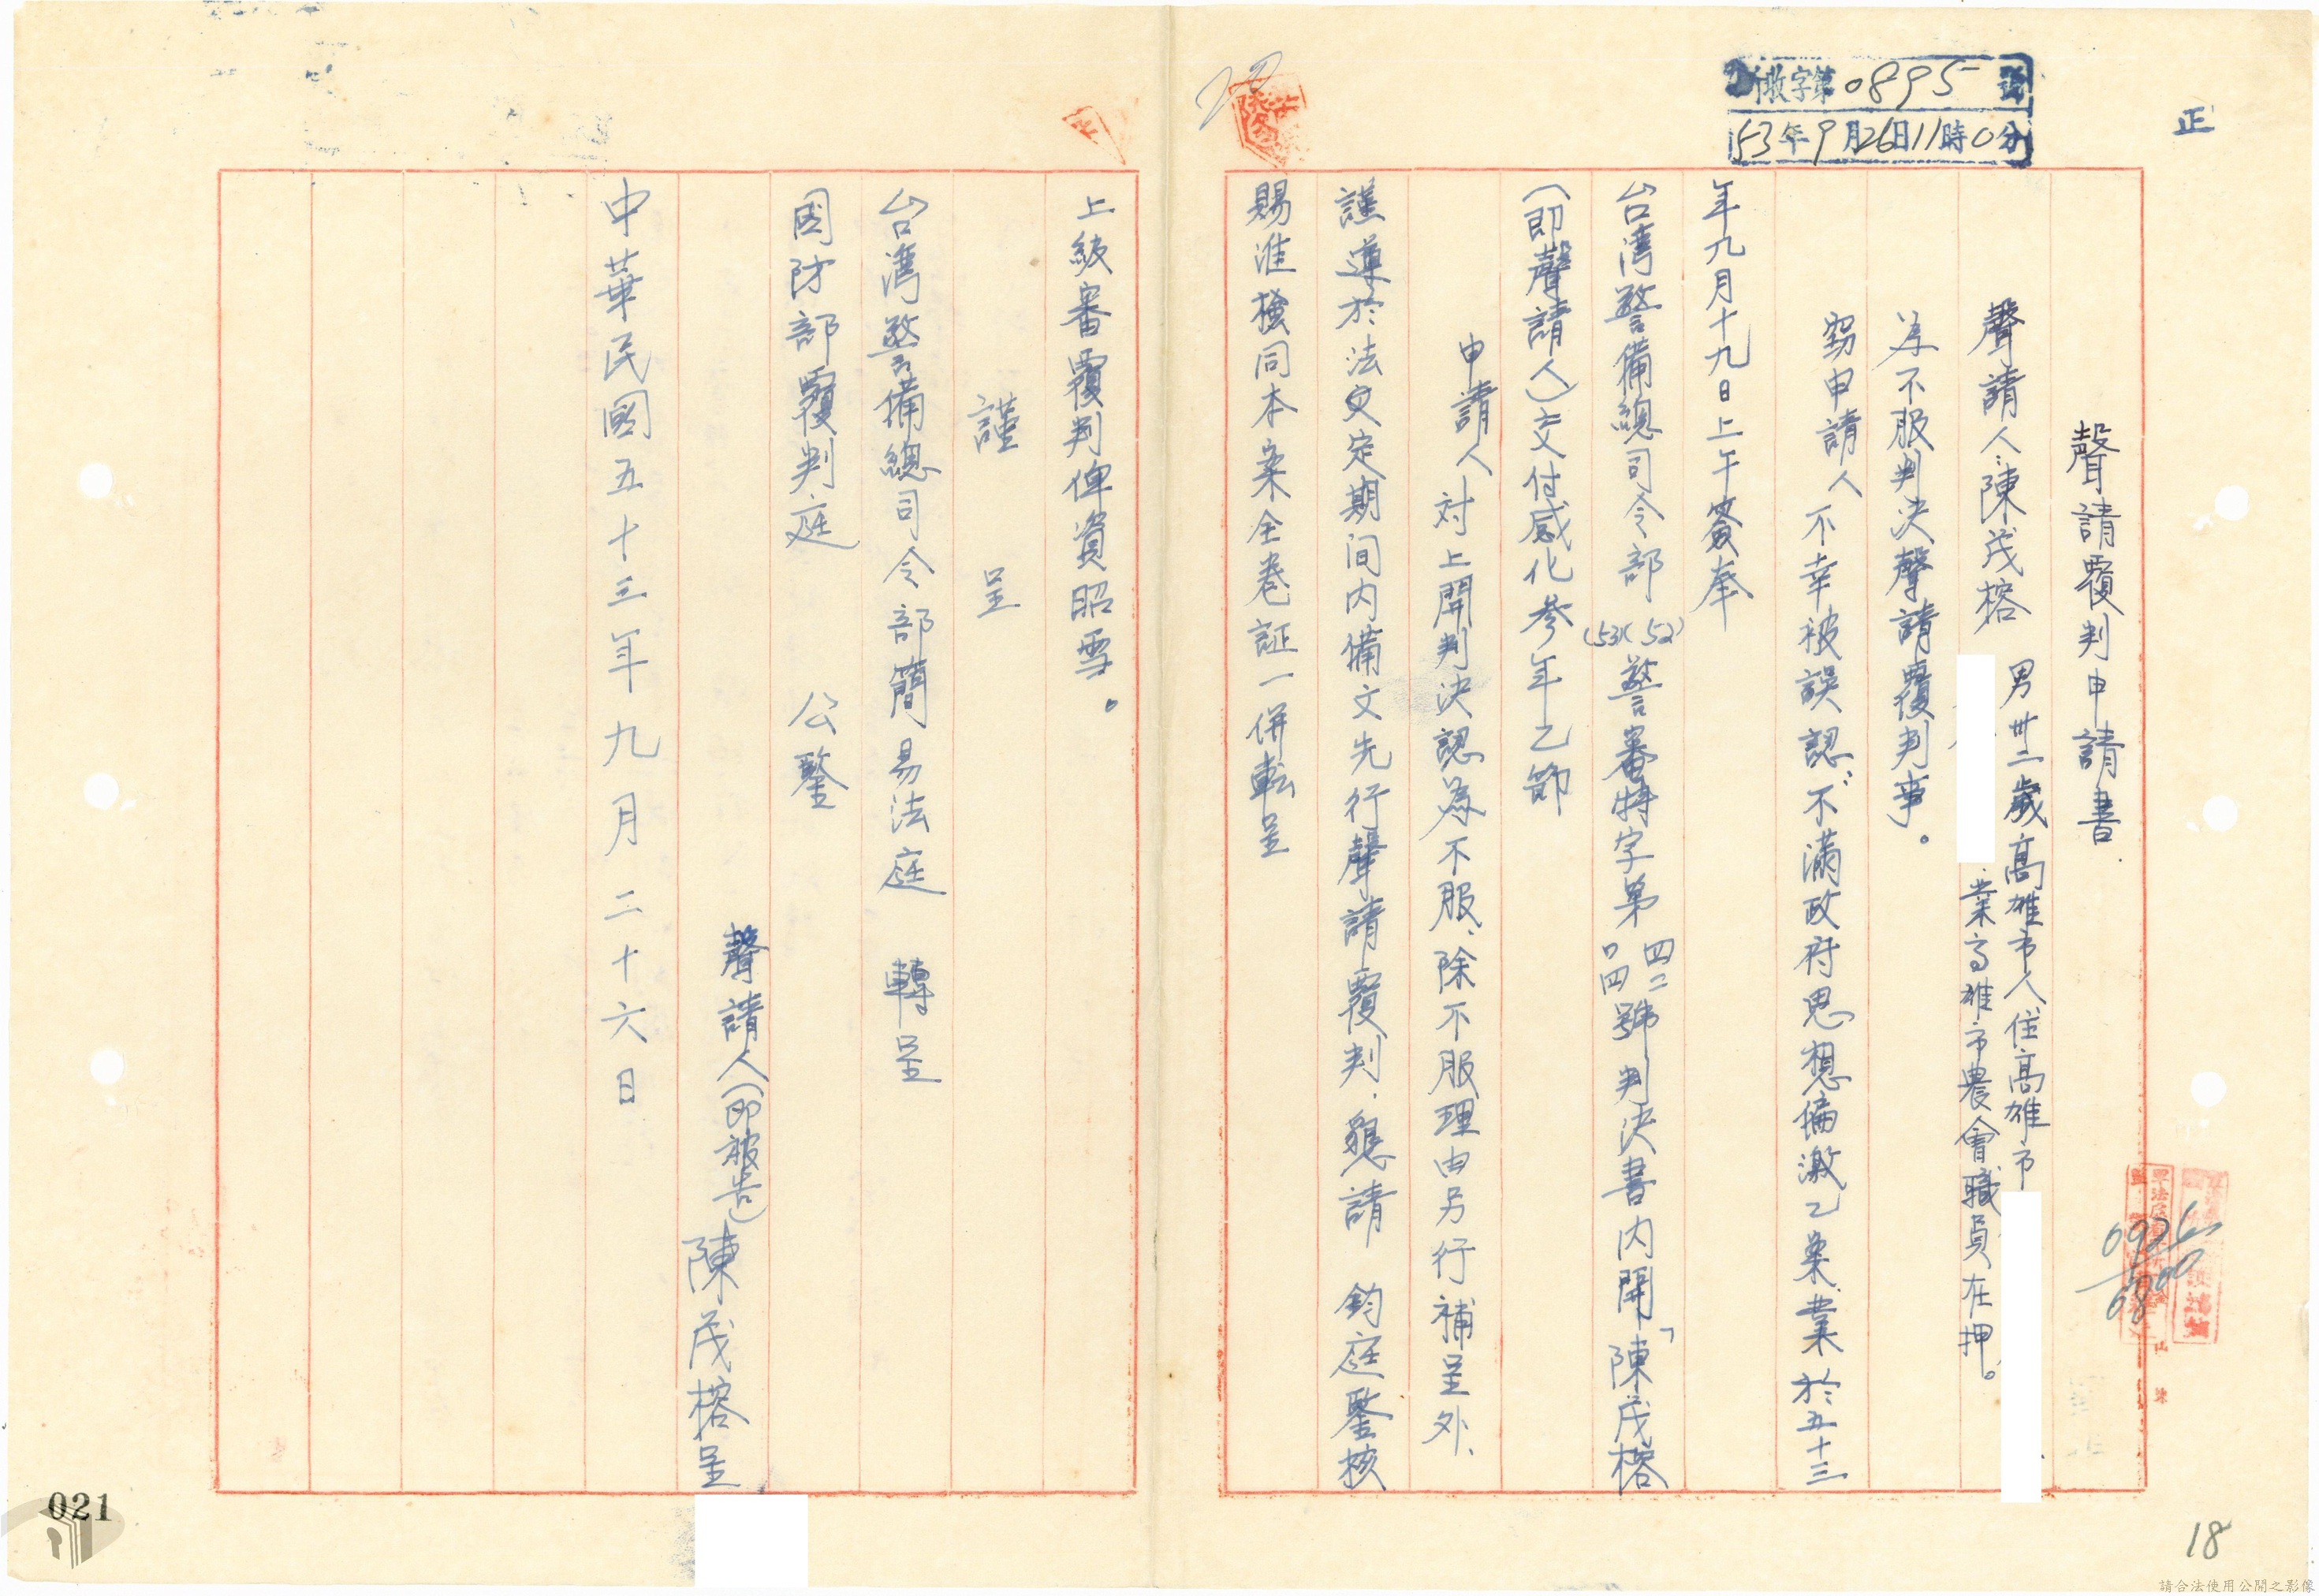 正
收字第0895號
53年9月26日11時0分
聲請覆判申請書
聲請人:陳茂榕 男卅二歲高雄市人住高雄市
業高雄市農會職員在押。
為不服判決聲請覆判事。
竊申請人不幸被誤認、不滿政府思想偏激乙案、業於五十三
年九月十九日上午簽奉
台湾警備總司令部(53)(52)警審特字第四二 口四號判決書内開「陳茂榕
(即聲請人)交付感化參年乙節
申請人对上開判決認為不服、除不服理由另行補呈外、
謹遵於法定期间内備文先行聲請覆判.懇請 鈞庭鑒核
賜准檢同本案全卷証一併転呈
上級審覆判俾資昭雪。
謹 呈
台湾警備總司令部簡易法庭 轉呈
國防部覆判庭 公鑒
聲請人(即被告)陳茂榕呈
中華民國五十三年九月二十六日
021
18
請合法使用公開之影像